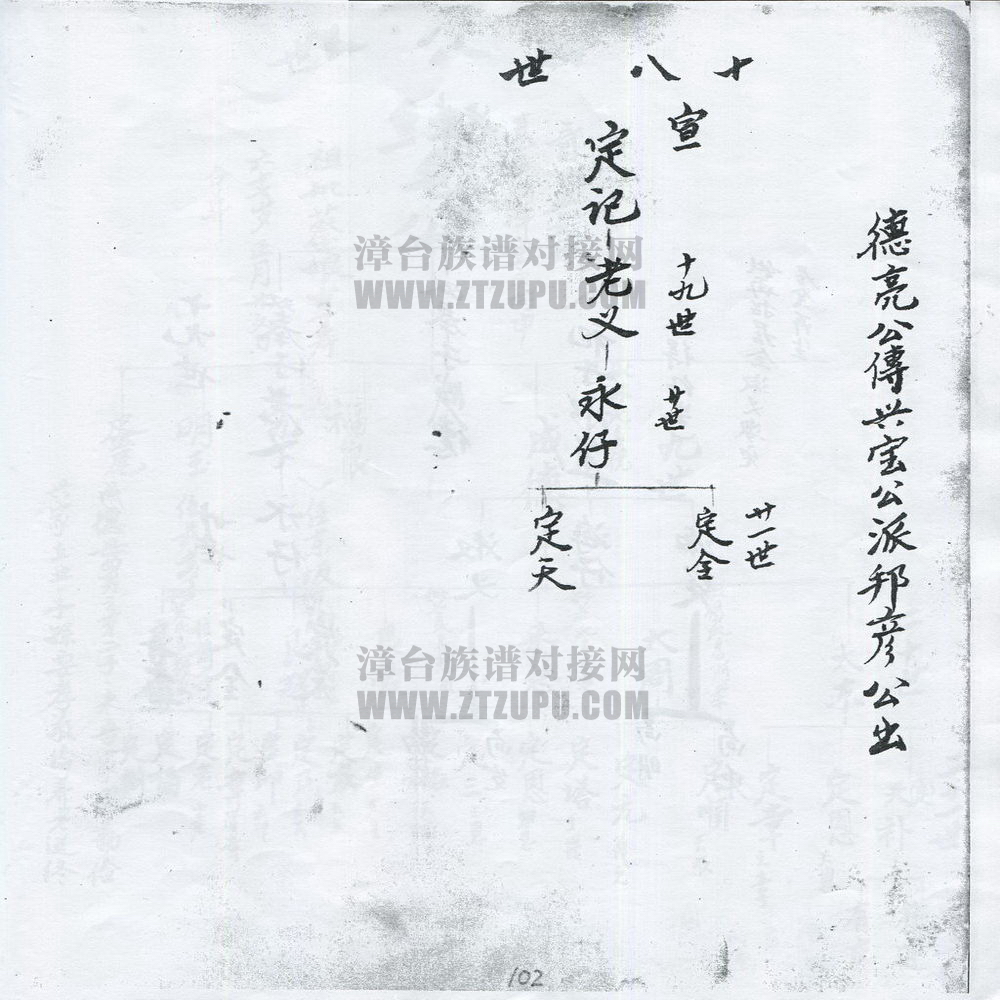 德亮公傳兴宝公派邦彦公出
十八世
宣
定记-老义-永仔
十九世
廿世
廿一世
定全
定天
漳台族谱对接网
WWW.ZTZUPU.COM
漳台族谱对接网
WWW.ZTZUPU.COM
102